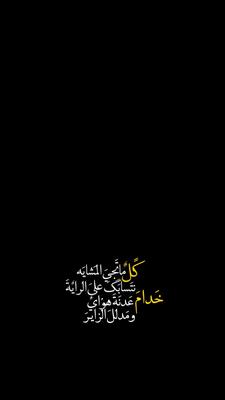 كلّ ماتجي المشايه
نتسابگ على الراية
خدام عدنه هواي
ومدلل الزاير